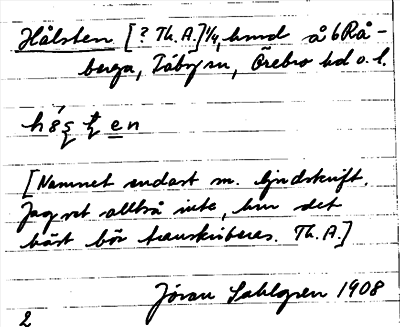 Hålsten [? Th. A.] 1/4, hmd å 6 Rå-
berga, Täby sn, Örebro hd o. l.
en
[Namnet endast m. ljudskrift.
Jag vet alltså inte, hur det
bäst bör transkriberas. Th. A.]
Jöran Sahlgren 1908
2